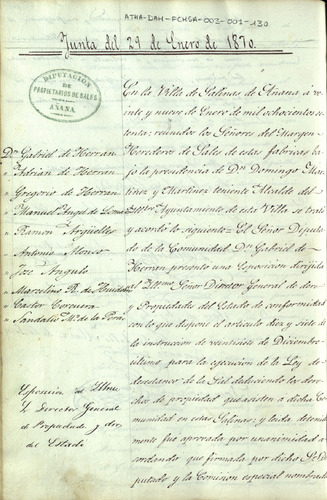 ATHA-DAH-FCHSA-003-001-130
Junta del 29 de Enero de 1870.
DIPUTACION
DE
PROPIETARIOS DE SALES
AÑANA.
En la Villa de Salinas de Añana a ve
inte y nueve de Enero de mil ochocientos se
tenta: reunidos los Señores del margen
Herederos de Sales de estas fabricas ba
jo la presidencia de Dn Domingo Mar
tinez y Martinez teniente Alcalde del
Ayuntamiento de esta Villa se trató
y acordó lo siguiente = El Señor Diputa
do de la Comunidad Dn Gabriel de
Herran presentó una Esposicion dirijida
al Ilmo Señor Director General de
y Propiedades del Estado de conformidad
con lo que dispone el articulo diez y siete de
la instruccion de veintiseis de Diciembre
último para la ejecucion de la Ley de
desestanco de la Sal deduciendo los dere
chos de propiedad que asisten a dicha Co
munidad en estas Salinas; y leida deteni
mente fue aprovada por unanimidad a
cordando que firmada por dicho Sr Di
putado y la Comision especial nombrada
Dn Gabriel de Herran
" Adrian de Herran
" Gregorio de Herran
" Manuel Angel de
" Ramon Argüelles
" Antonio Alonso
" Jose Angulo
" Marcelino R. de
" Castor Corcuera
" Sandalio Ma de la Peña
Esposicion al Ilmo
Sr Director General
de Propiedades y dros
del Estado